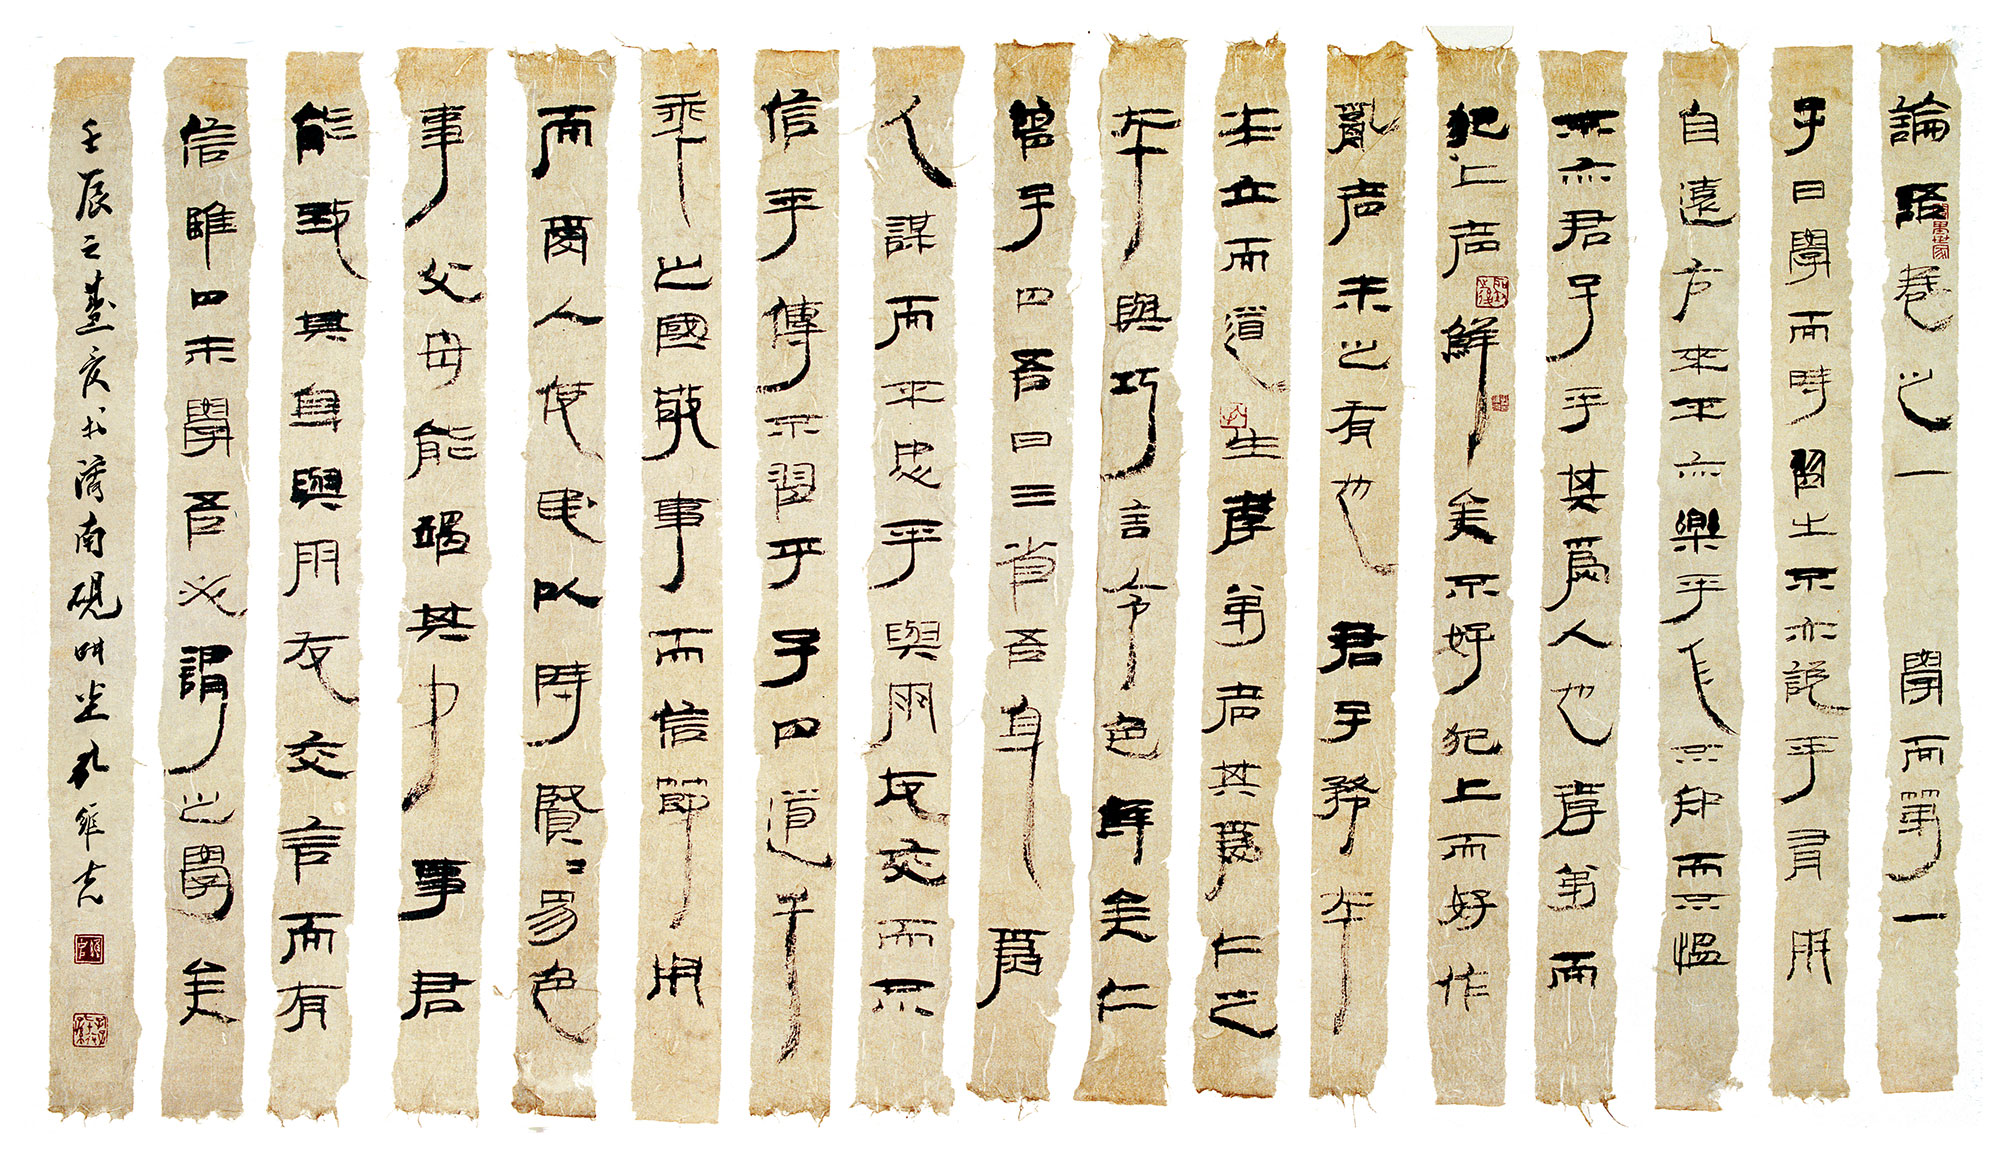 論語卷之一 學而第一
子曰學而時習之不亦說乎有朋
自遠方來不亦樂乎人不知而不慍
不亦君子乎其爲人也孝弟而
犯上者鮮矣不好犯上而好作
亂者未之有也君子務本
本立而道生孝弟者其爲仁之
本與巧言令色鮮矣仁
曾子曰吾日三省吾身爲
人謀而不忠乎與朋友交而不
信乎傳不習乎子曰道千
乘之國敬事而信節用
而愛人使民以時賢〻易色
事父母能竭其力事君
能致其身與朋友交言而有
信雖曰未學吾必謂之學矣
壬辰之盛夏於濟南硯耕堂孔維克